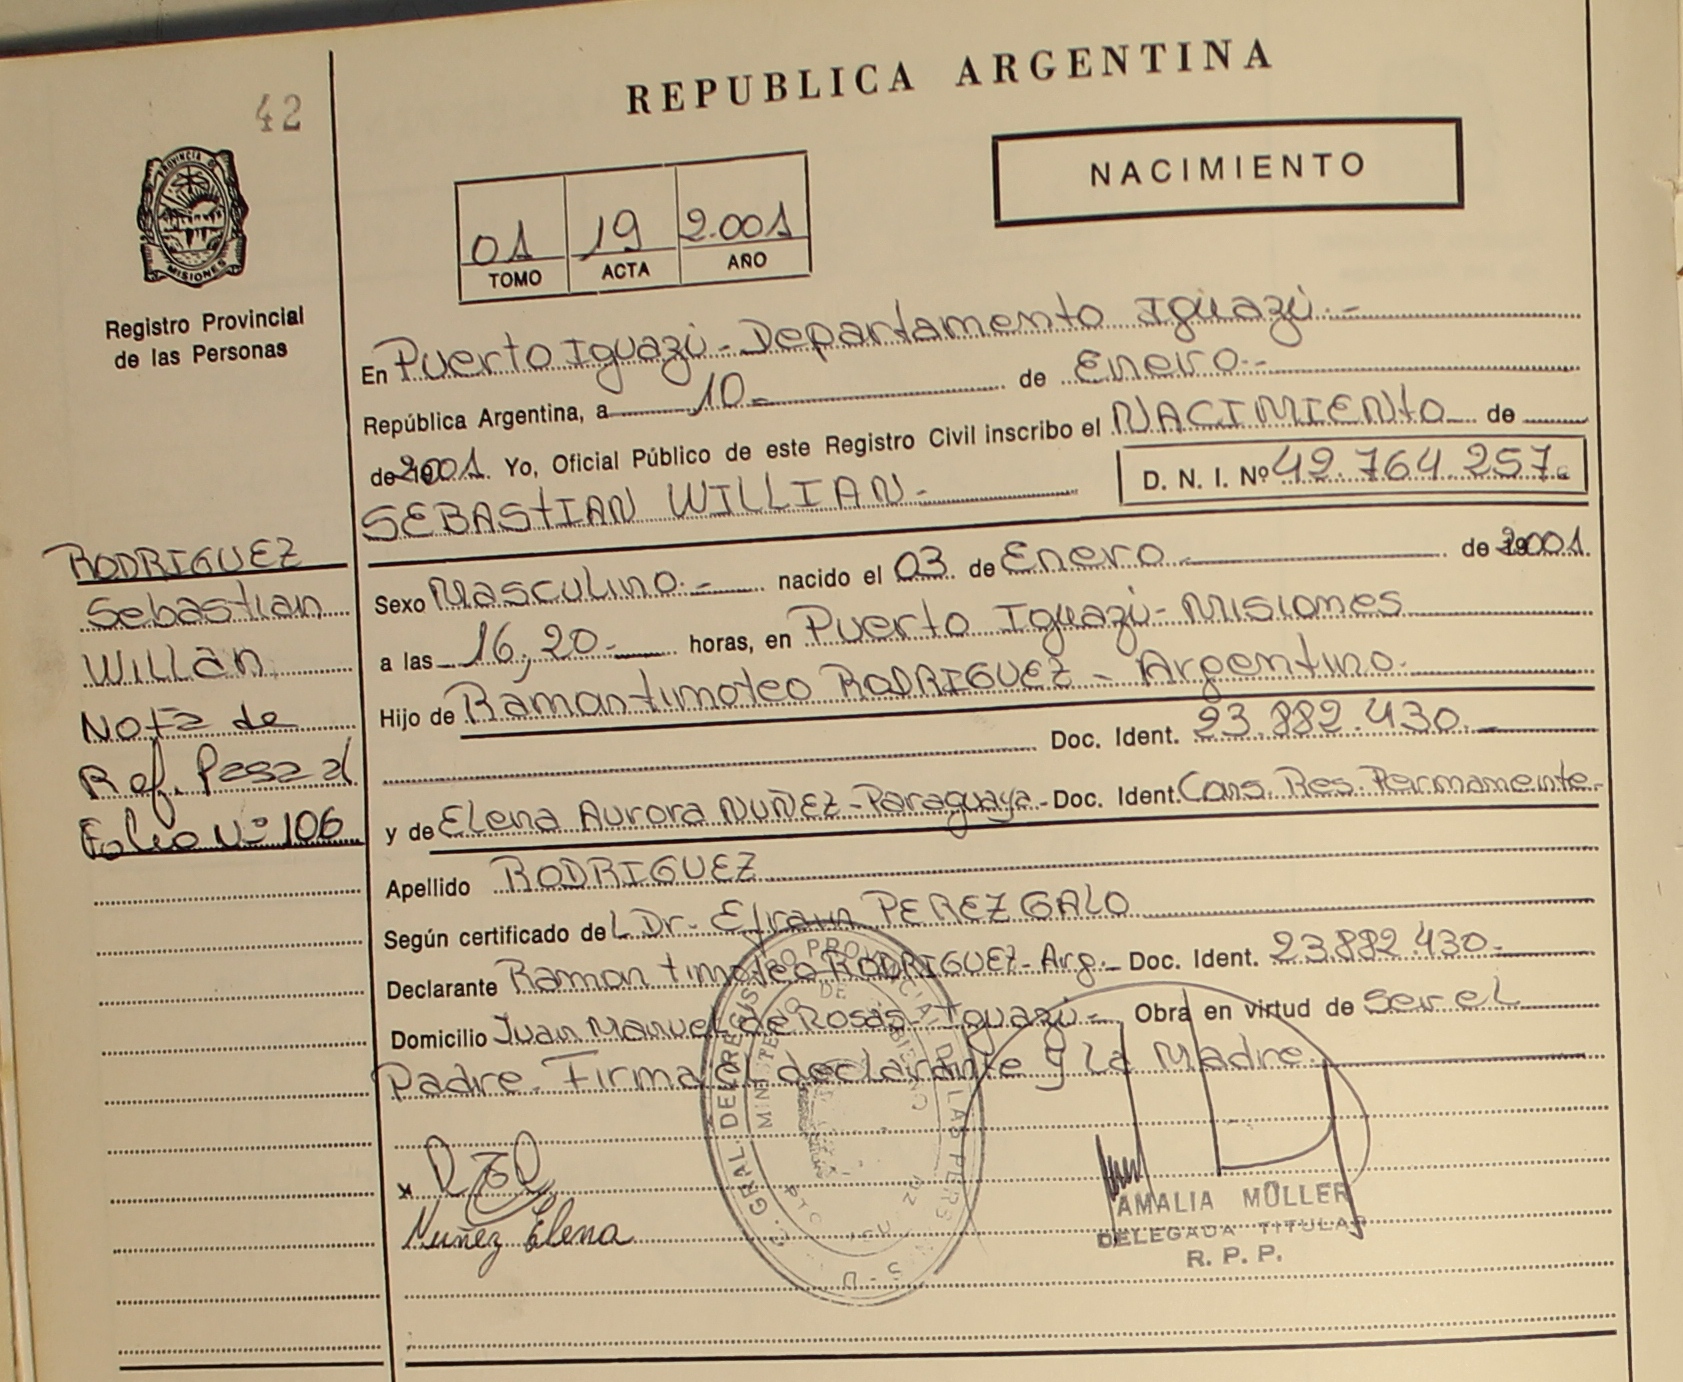 42
REPUBLICA ARGENTINA
NACIMIENTO
PROVINCIA DE
MISIONES
Registro Provincial
de las Personas
01 19 2.001
TOMO ACTA AÑO
En Puerto Iguazú - Departamento Iguazú.-
República Argentina, a 10- de Enero.-
de 2001. Yo, Oficial Público de este Registro Civil inscribo el NACIMIENtO de
SEBAStIAN WILLIAN.- D. N. I. Nº 42.764.257.
RODRIGUEZ
Sebastian
Willan
Nota de
Ref. Pasa al
Folio Nº 106
Sexo Masculino.- nacido el 03 de Enero.- de 2001.
a las 16,20.- horas, en Puerto Iguazú - Misiones
Hijo de Ramon timoteo RODRIGUEZ - Argentino.
Doc. Ident. 23.882.430.-
y de Elena Aurora NUÑEZ - Paraguaya - Doc. Ident. Cons. Res. Permanente-
Apellido RODRIGUEZ
Según certificado del Dr. Efrain PEREZ GALO
Declarante Ramon timoteo RODRIGUEZ - Arg.- Doc. Ident. 23.882.430.-
Domicilio Juan Manuel de Rosas - Iguazú - Obra en virtud de Ser el
Padre. Firma el declarante y la Madre.
Nuñez Elena
AMALIA MÜLLER
DELEGADA TITULAR
R. P. P.